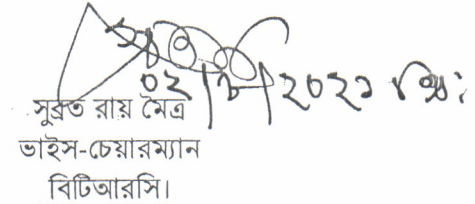 ০২/৮/২০২১ খ্রিঃ
সুব্রত রায় মৈত্র
ভাইস-চেয়ারম্যান
বিটিআরসি।